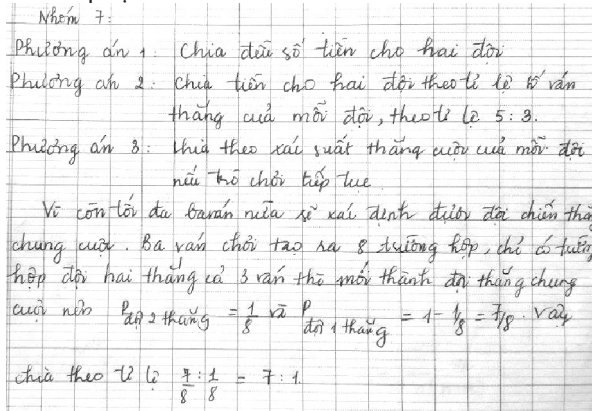 Nhóm 7:
Phương án 1: Chia đều số tiền cho hai đội
Phương án 2: Chia tiền cho hai đội theo tỉ lệ số ván
thắng của mỗi đội, theo tỉ lệ 5:3.
Phương án 3: Chia theo xác suất thắng cuộc của mỗi đội
nếu trò chơi tiếp tục
Vì còn tối đa ba ván nữa sẽ xác định được đội chiến thắng
chung cuộc. Ba ván chơi tạo ra 8 trường hợp, chỉ có trường
hợp đội hai thắng cả 3 ván thì mới thành đội thắng chung
cuộc nên P đội 2 thắng = 1/8 và P đội 1 thắng = 1 - 1/8 = 7/8. Vậy
chia theo tỉ lệ 7/8 : 1/8 = 7:1.